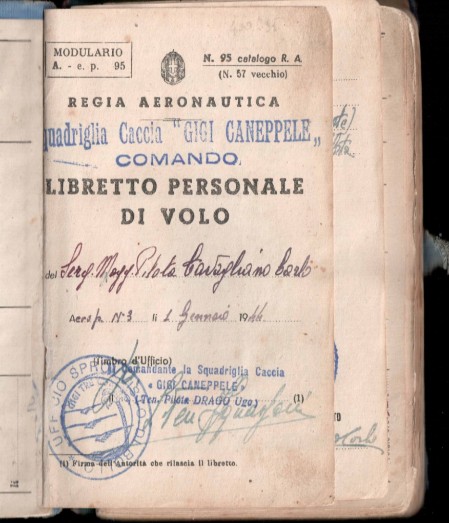 MODULARIO
A. - e. p. 95
N. 95 catalogo R. A.
(N. 57 vecchio)
REGIA AERONAUTICA
quadriglia Caccia "GIGI CANEPPELE„
COMANDO
LIBRETTO PERSONALE
DI VOLO
del Serg. Magg. Pilota Cavagliano Carlo
N° 3 li 2 Gennaio 1944
(Timbro d'Ufficio)
Il Comandante la Squadriglia Caccia
« GIGI CANEPPELE »
(Ten. Pilota DRAGO Ugo)
(1)
UFFICIO
(1) Firma dell'Autorità che rilascia il libretto.